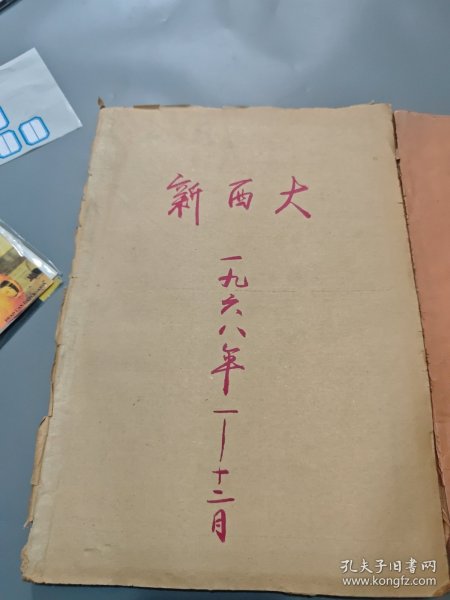 新西大
一九六八年一—十二月
孔夫子旧书网
www.kongfz.com